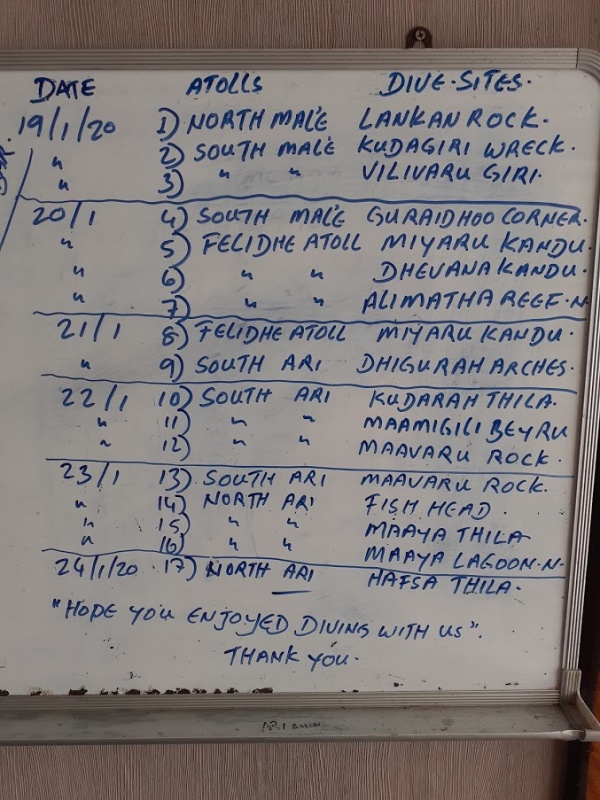 DATE ATOLLS DIVE.SITES.
19/1/20 1) NORTH MALÉ LANKAN ROCK.
" 2) SOUTH MALÉ KUDAGIRI WRECK.
" 3) " " VILIVARU GIRI.
20/1 4) SOUTH MALÉ GURAIDHOO CORNER.
" 5) FELIDHE ATOLL MIYARU KANDU.
" 6) " " DHEVANA KANDU.
" 7) " " ALIMATHA REEF.N
21/1 8) FELIDHE ATOLL MIYARU KANDU.
" 9) SOUTH ARI DHIGURAH ARCHES.
22/1 10) SOUTH ARI KUDARAH THILA.
" 11) " " MAAMIGILI BEYRU
" 12) " " MAAVARU ROCK.
23/1 13) SOUTH ARI MAAVARU ROCK.
" 14) NORTH ARI FISH HEAD.
" 15) " " MAAYA THILA
" 16) " " MAAYA LAGOON.N.
24/1/20 17) NORTH ARI HAFSA THILA.
"HOPE YOU ENJOYED DIVING WITH US".
THANK YOU.